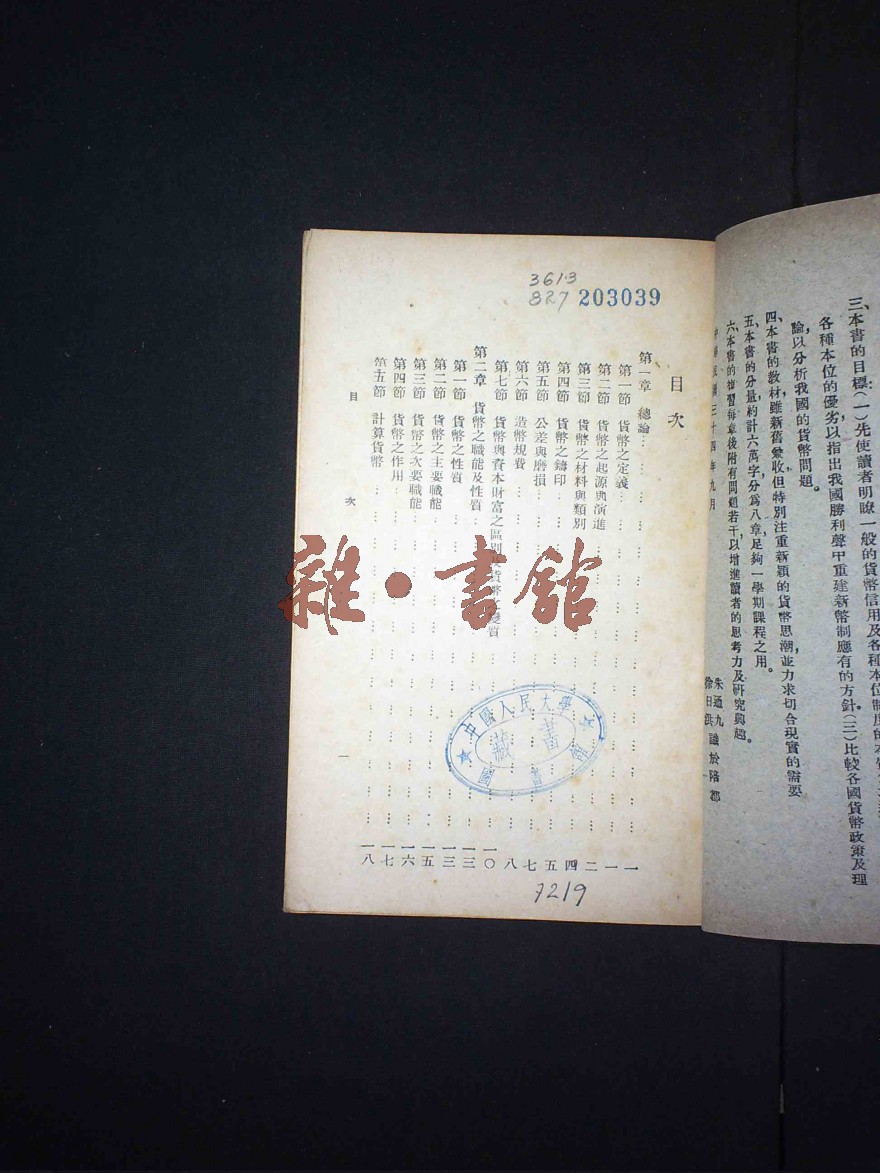 三、本書的目標(一)先使讀者明瞭一般的貨幣信用及各種本位制度的本質
各種本位的優劣以指出我國勝利聲中重建新幣制應有的方針。(三)比較各國貨幣政策及理
論,以分析我國的貨幣問題。
四、本書的教材雖新舊彙收但特別注重新穎的貨幣思潮,並力求切合現實的需要
五、本書的分量約計六萬字分為八章足夠一學期課程之用。
六、本書的複習每章後附有問題若干以增進讀者的思考力及研究興趣。
朱通九
識於陪都
中華民國三十四年九月
3613
827 203039
目次
第一章 總論…一
第一節 貨幣之定義…一
第二節 貨幣之起源與演進…二
第三節 貨幣之材料與類別…四
第四節 貨幣之鑄印…五
第五節 公差與磨損…七
第六節 造幣規費…八
第七節 貨幣與資本財富之區別及貨幣之變質…一〇
第二章 貨幣之職能及性質…一三
第一節 貨幣之性質…一三
第二節 貨幣之主要職能…一五
第三節 貨幣之次要職能…一六
第四節 貨幣之作用…一七
第五節 計算貨幣…一八
目次 一
中國人民大學
藏書
圖書館
7219
雜·書館